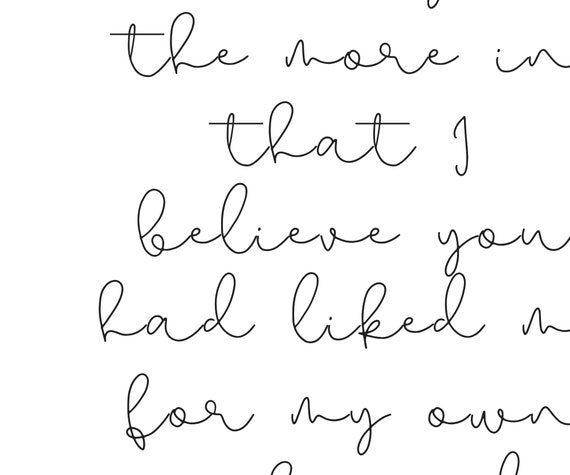 the more in
that I
believe you
had liked m
for my own